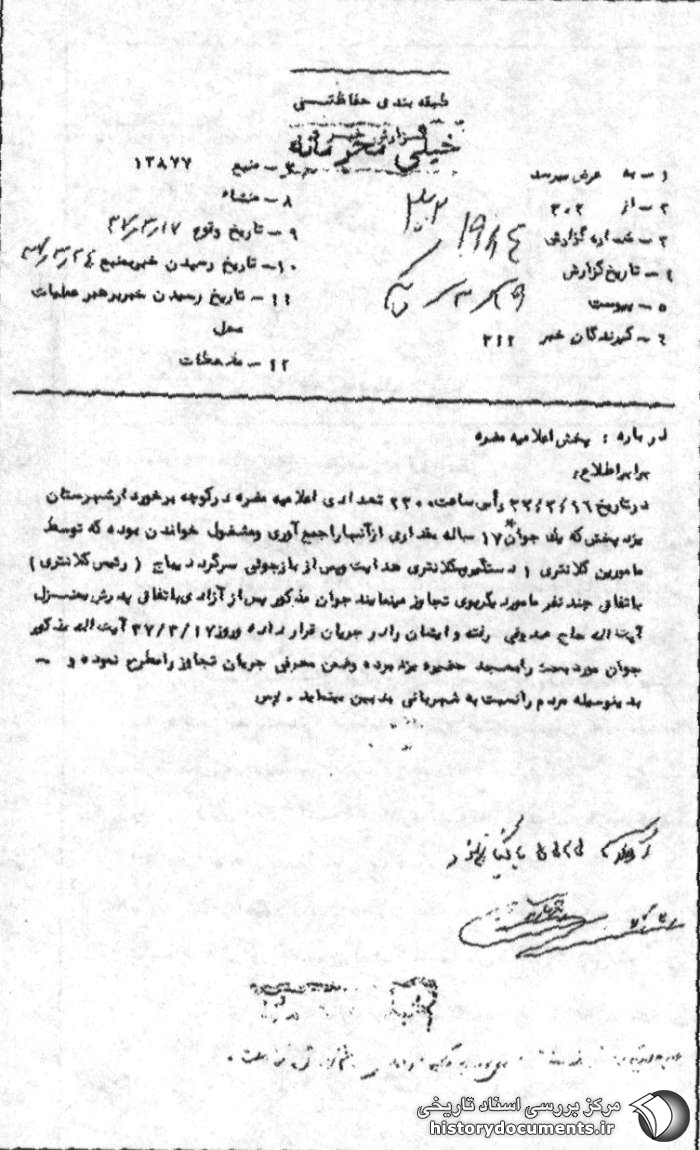 طبقه بندی حفاظتی
گزارش خبر
خیلی محرمانه
۱ – به عرض میرسد
۲ – از ۳۰۲
۳ – شماره گزارش
۴ – تاریخ گزارش
۵ – پیوست
۶ – گیرندگان خبر ۳۱۲
۷ – منبع ۱۳۸۷۷
۸ – منشاء
۹ – تاریخ وقوع ۳۷/۳/۱۷
۱۰ – تاریخ رسیدن خبر بمنبع ۳۷/۳/۲۴
۱۱ – تاریخ رسیدن خبر برهبر عملیات
محل
۱۲ – ملاحظات
درباره : پخش اعلامیه مضره
برابر اطلاع:
در تاریخ ۳۷/۳/۱۶ رأس ساعت ۲۳۰۰ تعدادی اعلامیه مضره در کوچه برخوردار شهرستان
یزد پخش که یک جوان ۱۷ ساله مقداری از آنها را جمع آوری و مشغول خواندن بوده که توسط
مامورین کلانتری ۱ دستگیر و بکلانتری هدایت و پس از بازجوئی سرگرد دیباج ( رئیس کلانتری )
باتفاق چند نفر مامور دیگر بوی تجاوز مینمایند جوان مذکور پس از آزادی باتفاق پدرش بمنزل
آیت اله حاج صدوقی رفته و ایشان را در جریان قرار داده و روز ۳۷/۳/۱۷ آیت اله مذکور
جوان مورد بحث را بمسجد حضیره یزد برده و ضمن معرفی جریان تجاوز را مطرح نموده و –
بدینوسیله مردم را نسبت به شهربانی بدبین مینماید . پرس
مرکز بررسی اسناد تاریخی
historydocuments.ir